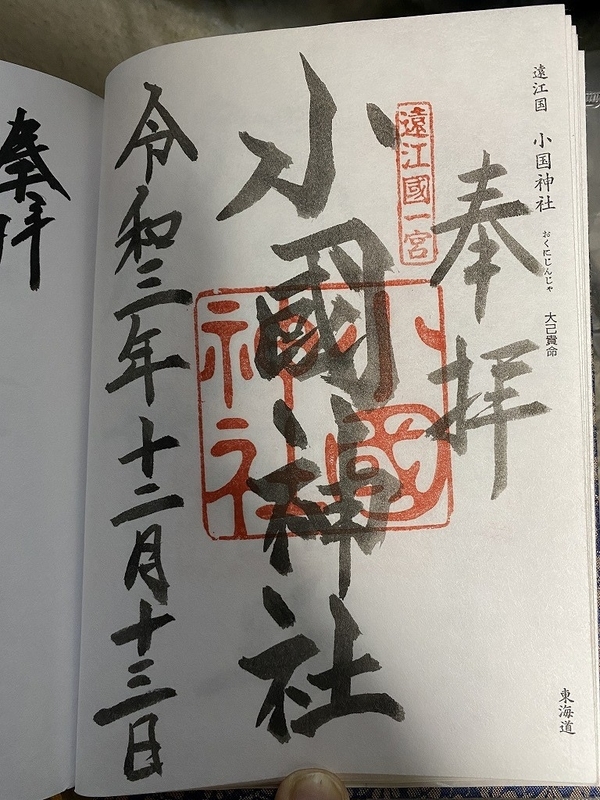 遠江国 小国神社 おくにじんじゃ 大己貴命
東海道
奉拝
遠江國一宮
小國神社
小國神社
令和三年十二月十三日
奉拝